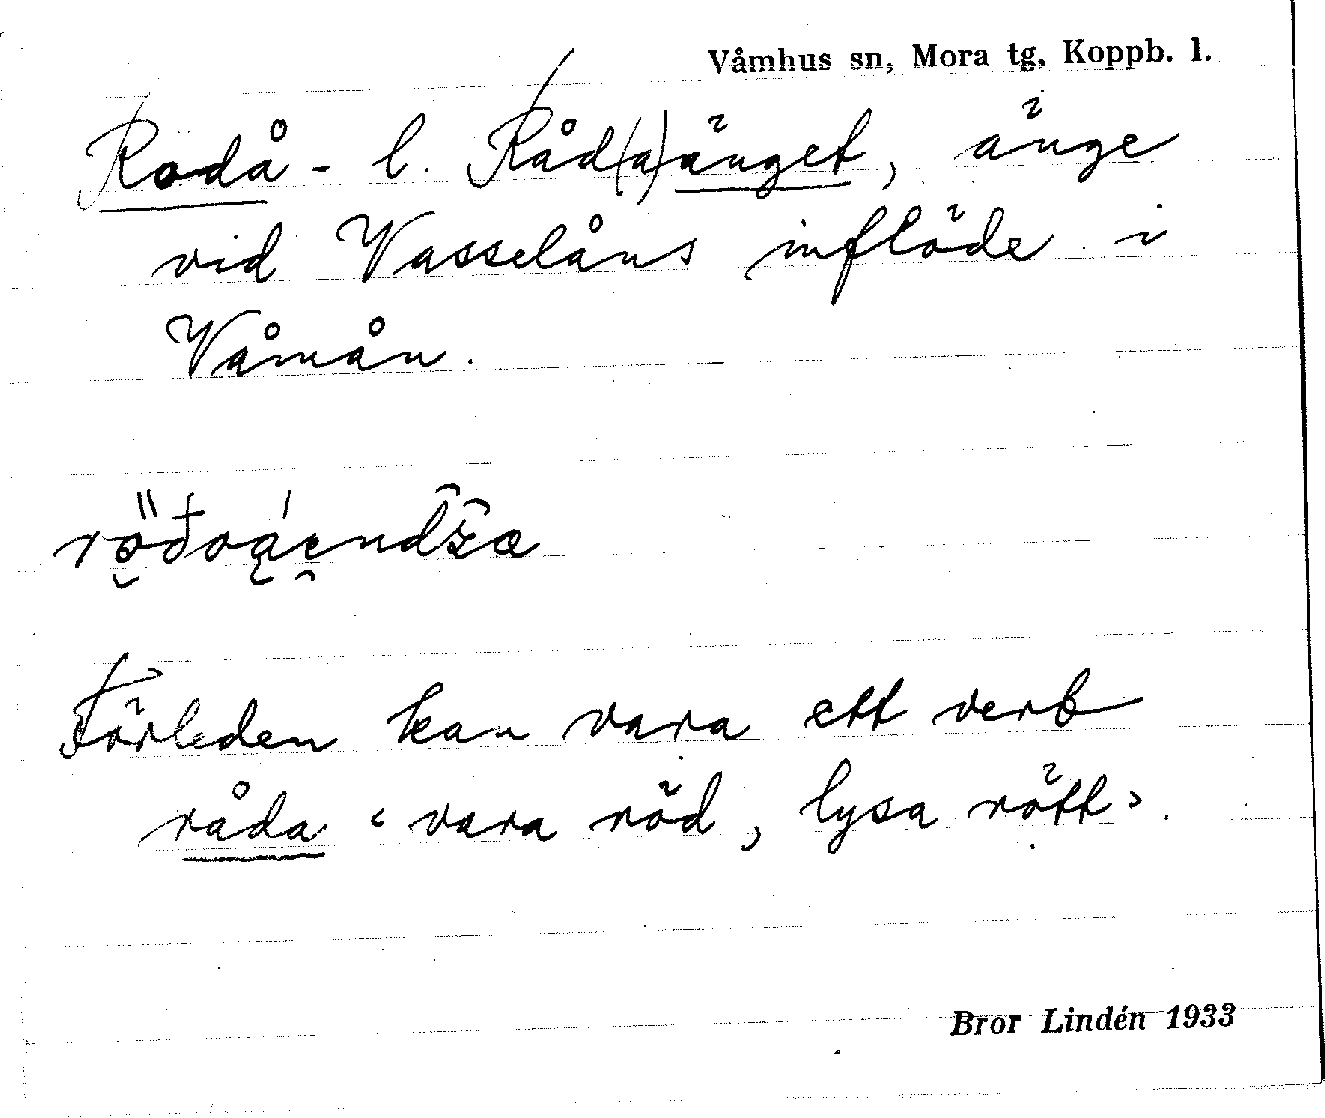 Våmhus sn, Mora tg, Koppb. l.
Rodå- l. Råd(a)änget, änge
vid Vasselåns inflöde i
Våmån.
Förleden kan vara ett verb
råda ‹ vara röd, lysa rött ›.
Bror Lindén 1933